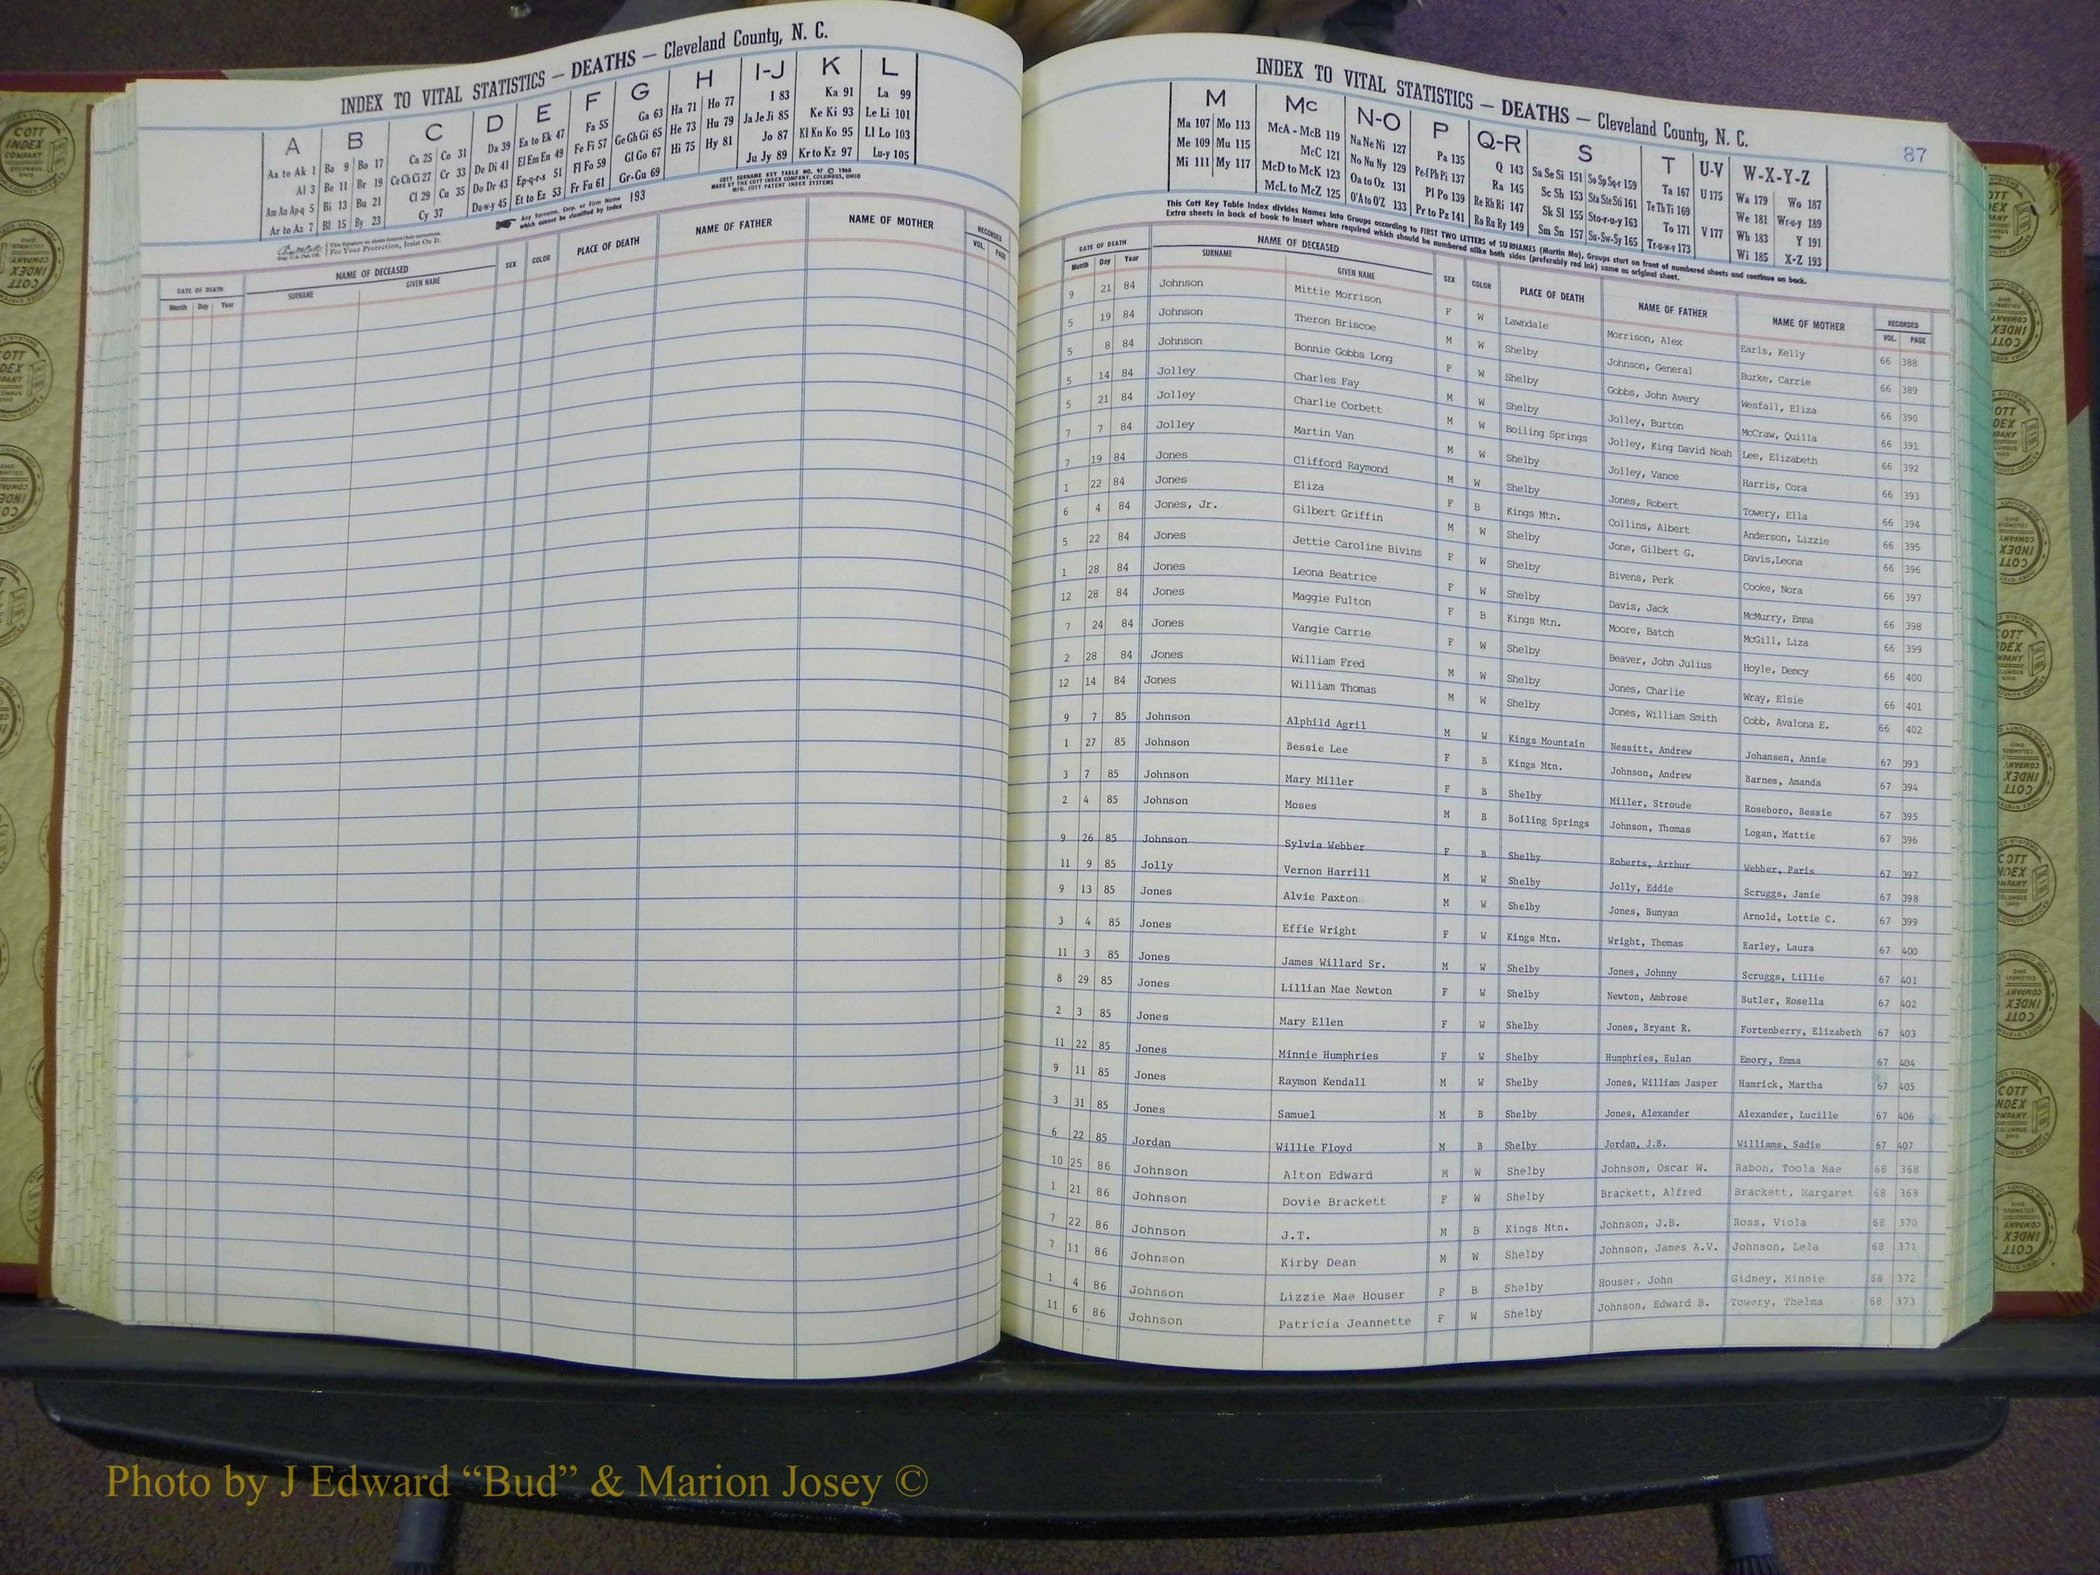 INDEX TO VITAL STATISTICS — DEATHS — Cleveland County, N. C.
A B C D E F G H I-J K L
Aa to Ak 1 Ba 9 Bo 17 Ca 25 Co 31 Da 39 Ea to Ek 47 Fa 55 Ga 63 Ha 71 Ho 77 I 83 Ka 91 La 99
Al 3 Be 11 Br 19 Ce Ch Ci 27 Cr 33 De Di 41 El Em En 49 Fe Fi 57 Ge Gh Gi 65 He 73 Hu 79 Ja Je Ji 85 Ke Ki 93 Le Li 101
Am An Ap-q 5 Bi 13 Bu 21 Cl 29 Cu 35 Do Dr 43 Ep-q-r-s 51 Fl Fo 59 Gl Go 67 Hi 75 Hy 81 Jo 87 Kl Kn Ko 95 Ll Lo 103
Ar to Az 7 Bl 15 By 23 Cy 37 Du-w-y 45 Et to Ez 53 Fr Fu 61 Gr-Gu 69 Ju Jy 89 Kr to Kz 97 Lu-y 105
Any Surname, Corp. or Firm Name which cannot be classified by Index 193
COTT SURNAME KEY TABLE NO. 97 © 1960
MADE BY THE COTT INDEX COMPANY, COLUMBUS, OHIO
MFG. COTT PATENT INDEX SYSTEMS
For Your Protection, Insist On It.
DATE OF DEATH NAME OF DECEASED SEX COLOR PLACE OF DEATH NAME OF FATHER NAME OF MOTHER RECORDED
Month Day Year SURNAME GIVEN NAME VOL. PAGE
INDEX TO VITAL STATISTICS — DEATHS — Cleveland County, N. C.
87
M Mc N-O P Q-R S T U-V W-X-Y-Z
Ma 107 Mo 113 McA - McB 119 Na Ne Ni 127 Pa 135 Q 143 Sa Se Si 151 So Sp Sq-r 159 Ta 167 U 175 Wa 179 Wo 187
Me 109 Mu 115 McC 121 No Nu Ny 129 Pe-f Ph Pi 137 Ra 145 Sc Sh 153 Sta Ste Sti 161 Te Th Ti 169 We 181 Wr-u-y 189
Mi 111 My 117 McD to McK 123 Oa to Oz 131 Pl Po 139 Re Rh Ri 147 Sk Sl 155 Sto-r-u-y 163 To 171 V 177 Wh 183 Y 191
McL to McZ 125 O'A to O'Z 133 Pr to Pz 141 Ro Ru Ry 149 Sm Sn 157 Su-Sw-Sy 165 Tr-u-w-y 173 Wi 185 X-Z 193
This Cott Key Table Index divides Names into Groups according to FIRST TWO LETTERS of SURNAMES (Martin Ma), Groups start on front of numbered sheets and continue on back.
Extra sheets in back of book to insert where required which should be numbered alike both sides (preferably red ink) same as original sheet.
DATE OF DEATH NAME OF DECEASED SEX COLOR PLACE OF DEATH NAME OF FATHER NAME OF MOTHER RECORDED
Month Day Year SURNAME GIVEN NAME VOL. PAGE
9 21 84 Johnson Mittie Morrison F W Lawndale Morrison, Alex Earls, Kelly 66 388
5 19 84 Johnson Theron Briscoe M W Shelby Johnson, General Burke, Carrie 66 389
5 8 84 Johnson Bonnie Gobbs Long F W Shelby Gobbs, John Avery Wesfall, Eliza 66 390
5 14 84 Jolley Charles Fay M W Shelby Jolley, Burton McCraw, Quilla 66 391
5 21 84 Jolley Charlie Corbett M W Boiling Springs Jolley, King David Noah Lee, Elizabeth 66 392
7 7 84 Jolley Martin Van M W Shelby Jolley, Vance Harris, Cora 66 393
7 19 84 Jones Clifford Raymond M W Shelby Jones, Robert Towery, Ella 66 394
1 22 84 Jones Eliza F B Kings Mtn. Collins, Albert Anderson, Lizzie 66 395
6 4 84 Jones, Jr. Gilbert Griffin M W Shelby Jone, Gilbert G. Davis,Leona 66 396
5 22 84 Jones Jettie Caroline Bivins F W Shelby Bivens, Perk Cooke, Nora 66 397
1 28 84 Jones Leona Beatrice F W Shelby Davis, Jack McMurry, Emma 66 398
12 28 84 Jones Maggie Fulton F B Kings Mtn. Moore, Batch McGill, Liza 66 399
7 24 84 Jones Vangie Carrie F W Shelby Beaver, John Julius Hoyle, Demcy 66 400
2 28 84 Jones William Fred M W Shelby Jones, Charlie Wray, Elsie 66 401
12 14 84 Jones William Thomas M W Shelby Jones, William Smith Cobb, Avalona E. 66 402
9 7 85 Johnson Alphild Agril M W Kings Mountain Nessitt, Andrew Johansen, Annie 67 393
1 27 85 Johnson Bessie Lee F B Kings Mtn. Johnson, Andrew Barnes, Amanda 67 394
3 7 85 Johnson Mary Miller F B Shelby Miller, Stroude Roseboro, Bessie 67 395
2 4 85 Johnson Moses M B Boiling Springs Johnson, Thomas Logan, Mattie 67 396
9 26 85 Johnson Sylvia Webber F B Shelby Roberts, Arthur Webber, Paris 67 397
11 9 85 Jolly Vernon Harrill M W Shelby Jolly, Eddie Scruggs, Janie 67 398
9 13 85 Jones Alvie Paxton M W Shelby Jones, Bunyan Arnold, Lottie C. 67 399
3 4 85 Jones Effie Wright F W Kings Mtn. Wright, Thomas Earley, Laura 67 400
11 3 85 Jones James Willard Sr. M W Shelby Jones, Johnny Scruggs, Lillie 67 401
8 29 85 Jones Lillian Mae Newton F W Shelby Newton, Ambrose Butler, Rosella 67 402
2 3 85 Jones Mary Ellen F W Shelby Jones, Bryant R. Fortenberry, Elizabeth 67 403
11 22 85 Jones Minnie Humphries F W Shelby Humphries, Eulan Emory, Emma 67 404
9 11 85 Jones Raymon Kendall M W Shelby Jones, William Jasper Hamrick, Martha 67 405
3 31 85 Jones Samuel M B Shelby Jones, Alexander Alexander, Lucille 67 406
6 22 85 Jordan Willie Floyd M B Shelby Jordan, J.B. Williams, Sadie 67 407
10 25 86 Johnson Alton Edward M W Shelby Johnson, Oscar W. Rabon, Toola Mae 68 368
1 21 86 Johnson Dovie Brackett F W Shelby Brackett, Alfred Brackett, Margaret 68 369
7 22 86 Johnson J.T. M B Kings Mtn. Johnson, J.B. Ross, Viola 68 370
7 11 86 Johnson Kirby Dean M W Shelby Johnson, James A.V. Johnson, Lela 68 371
1 4 86 Johnson Lizzie Mae Houser F B Shelby Houser, John Gidney, Minnie 68 372
11 6 86 Johnson Patricia Jeannette F W Shelby Johnson, Edward B. Towery, Thelma 68 373
Photo by J Edward “Bud” & Marion Josey ©